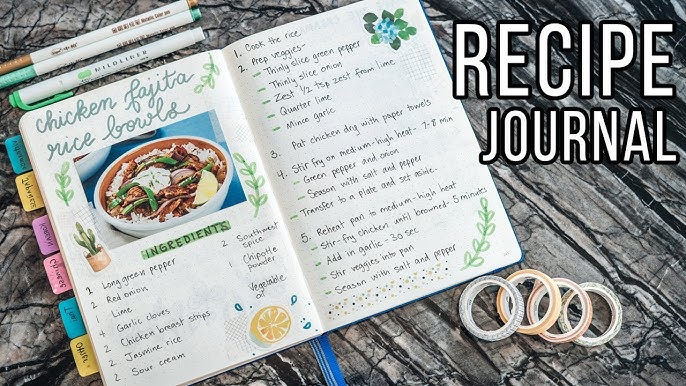 RECIPE
JOURNAL
MILDLINER
chicken fajita
rice bowls
INGREDIENTS
1 Long green pepper
2 Red onion
1 Lime
4 Garlic cloves
2 Chicken breast strips
2 Jasmine rice
2 Sour cream
2 Southwest
spice
1 Chipotle
powder
Vegetable
oil
1. Cook the rice
2. Prep veggies-
Thinly slice green pepper
Thinly slice onion
Zest 1/2 tsp zest from lime
Quarter lime
Mince garlic
3. Pat chicken dry with paper towels
4. Stir fry on medium-high heat- 7-8 min
Green pepper and onion
Season with salt and pepper
Transfer to a plate and set aside.
5. Reheat pan to medium-high heat
Stir-fry chicken until browned- 5 minutes
Add in garlic - 30 sec
Stir veggies into pan
Season with salt and pepper